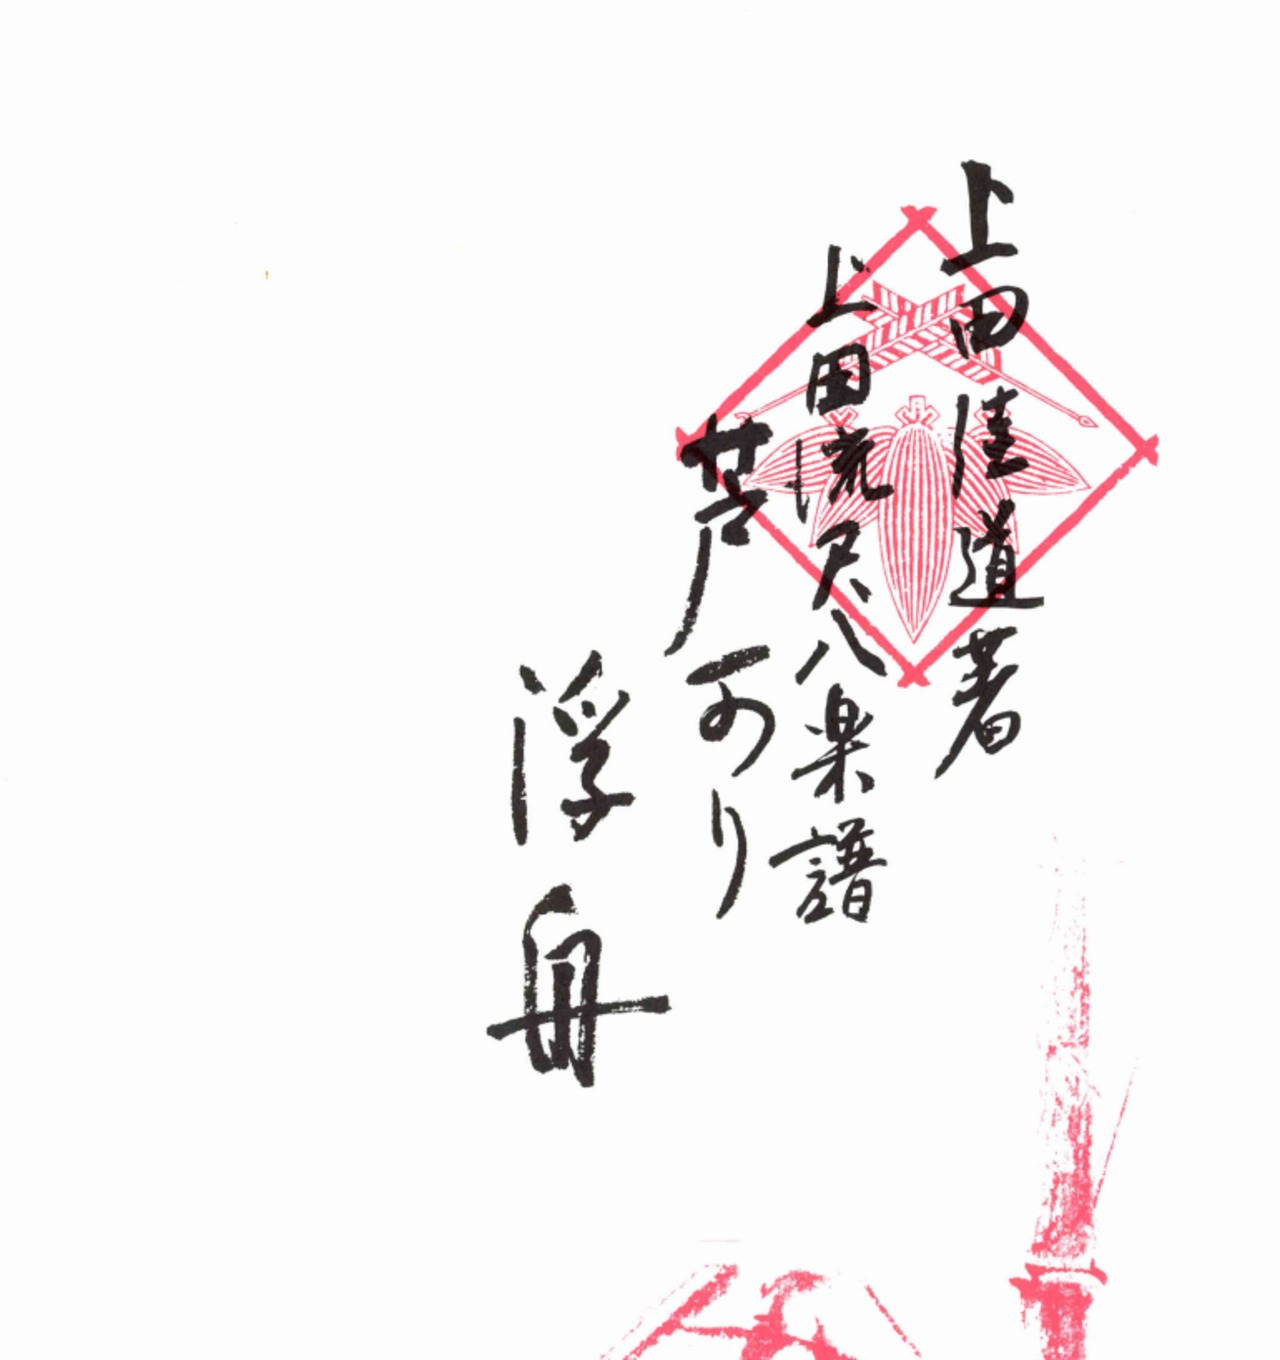 上田佳道著
上田流尺八楽譜
芦可り
浮舟